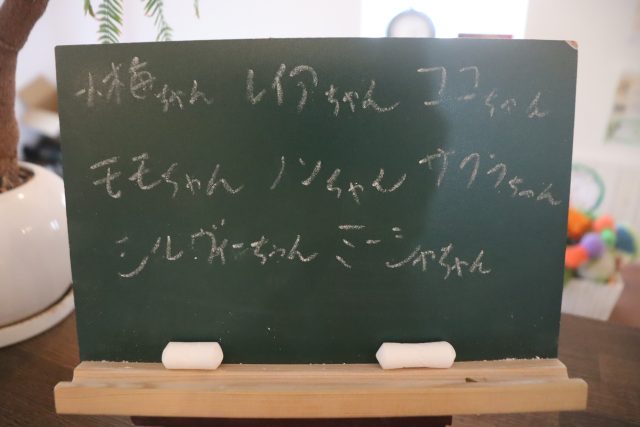 小梅ちゃん レイアちゃん ココちゃん
モモちゃん ノンちゃん サクラちゃん
シルヴィーちゃん ミーシャちゃん